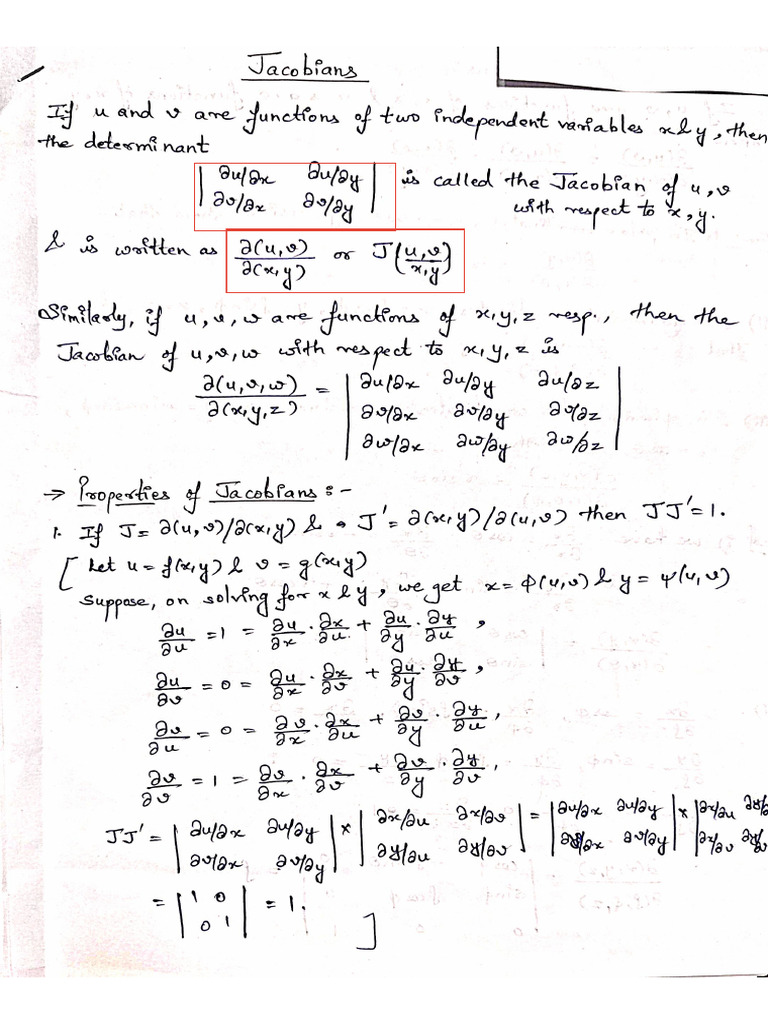 Jacobians
If u and v are functions of two independent variables x & y, then
the determinant
| ∂u/∂x ∂u/∂y |
| ∂v/∂x ∂v/∂y | is called the Jacobian of u, v
with respect to x, y.
& is written as ∂(u,v)/∂(x,y) or J(u,v/x,y)
Similarly, if u, v, w are functions of x, y, z resp., then the
Jacobian of u, v, w with respect to x, y, z is
∂(u,v,w)/∂(x,y,z) = | ∂u/∂x ∂u/∂y ∂u/∂z |
| ∂v/∂x ∂v/∂y ∂v/∂z |
| ∂w/∂x ∂w/∂y ∂w/∂z |
→ Properties of Jacobians :-
1. If J = ∂(u,v)/∂(x,y) & J' = ∂(x,y)/∂(u,v) then JJ' = 1.
[ Let u = f(x,y) & v = g(x,y)
suppose, on solving for x & y, we get x = Φ(u,v) & y = Ψ(u,v)
∂u/∂u = 1 = ∂u/∂x · ∂x/∂u + ∂u/∂y · ∂y/∂u ,
∂u/∂v = 0 = ∂u/∂x · ∂x/∂v + ∂u/∂y · ∂y/∂v ,
∂v/∂u = 0 = ∂v/∂x · ∂x/∂u + ∂v/∂y · ∂y/∂u ,
∂v/∂v = 1 = ∂v/∂x · ∂x/∂v + ∂v/∂y · ∂y/∂v ,
JJ' = | ∂u/∂x ∂u/∂y | × | ∂x/∂u ∂x/∂v | = | ∂u/∂x ∂u/∂y | × | ∂x/∂u ∂y/∂
| ∂v/∂x ∂v/∂y | | ∂y/∂u ∂y/∂v | | ∂v/∂x ∂v/∂y | | ∂x/∂v ∂y/∂v
= | 1 0 |
| 0 1 | = 1.
]